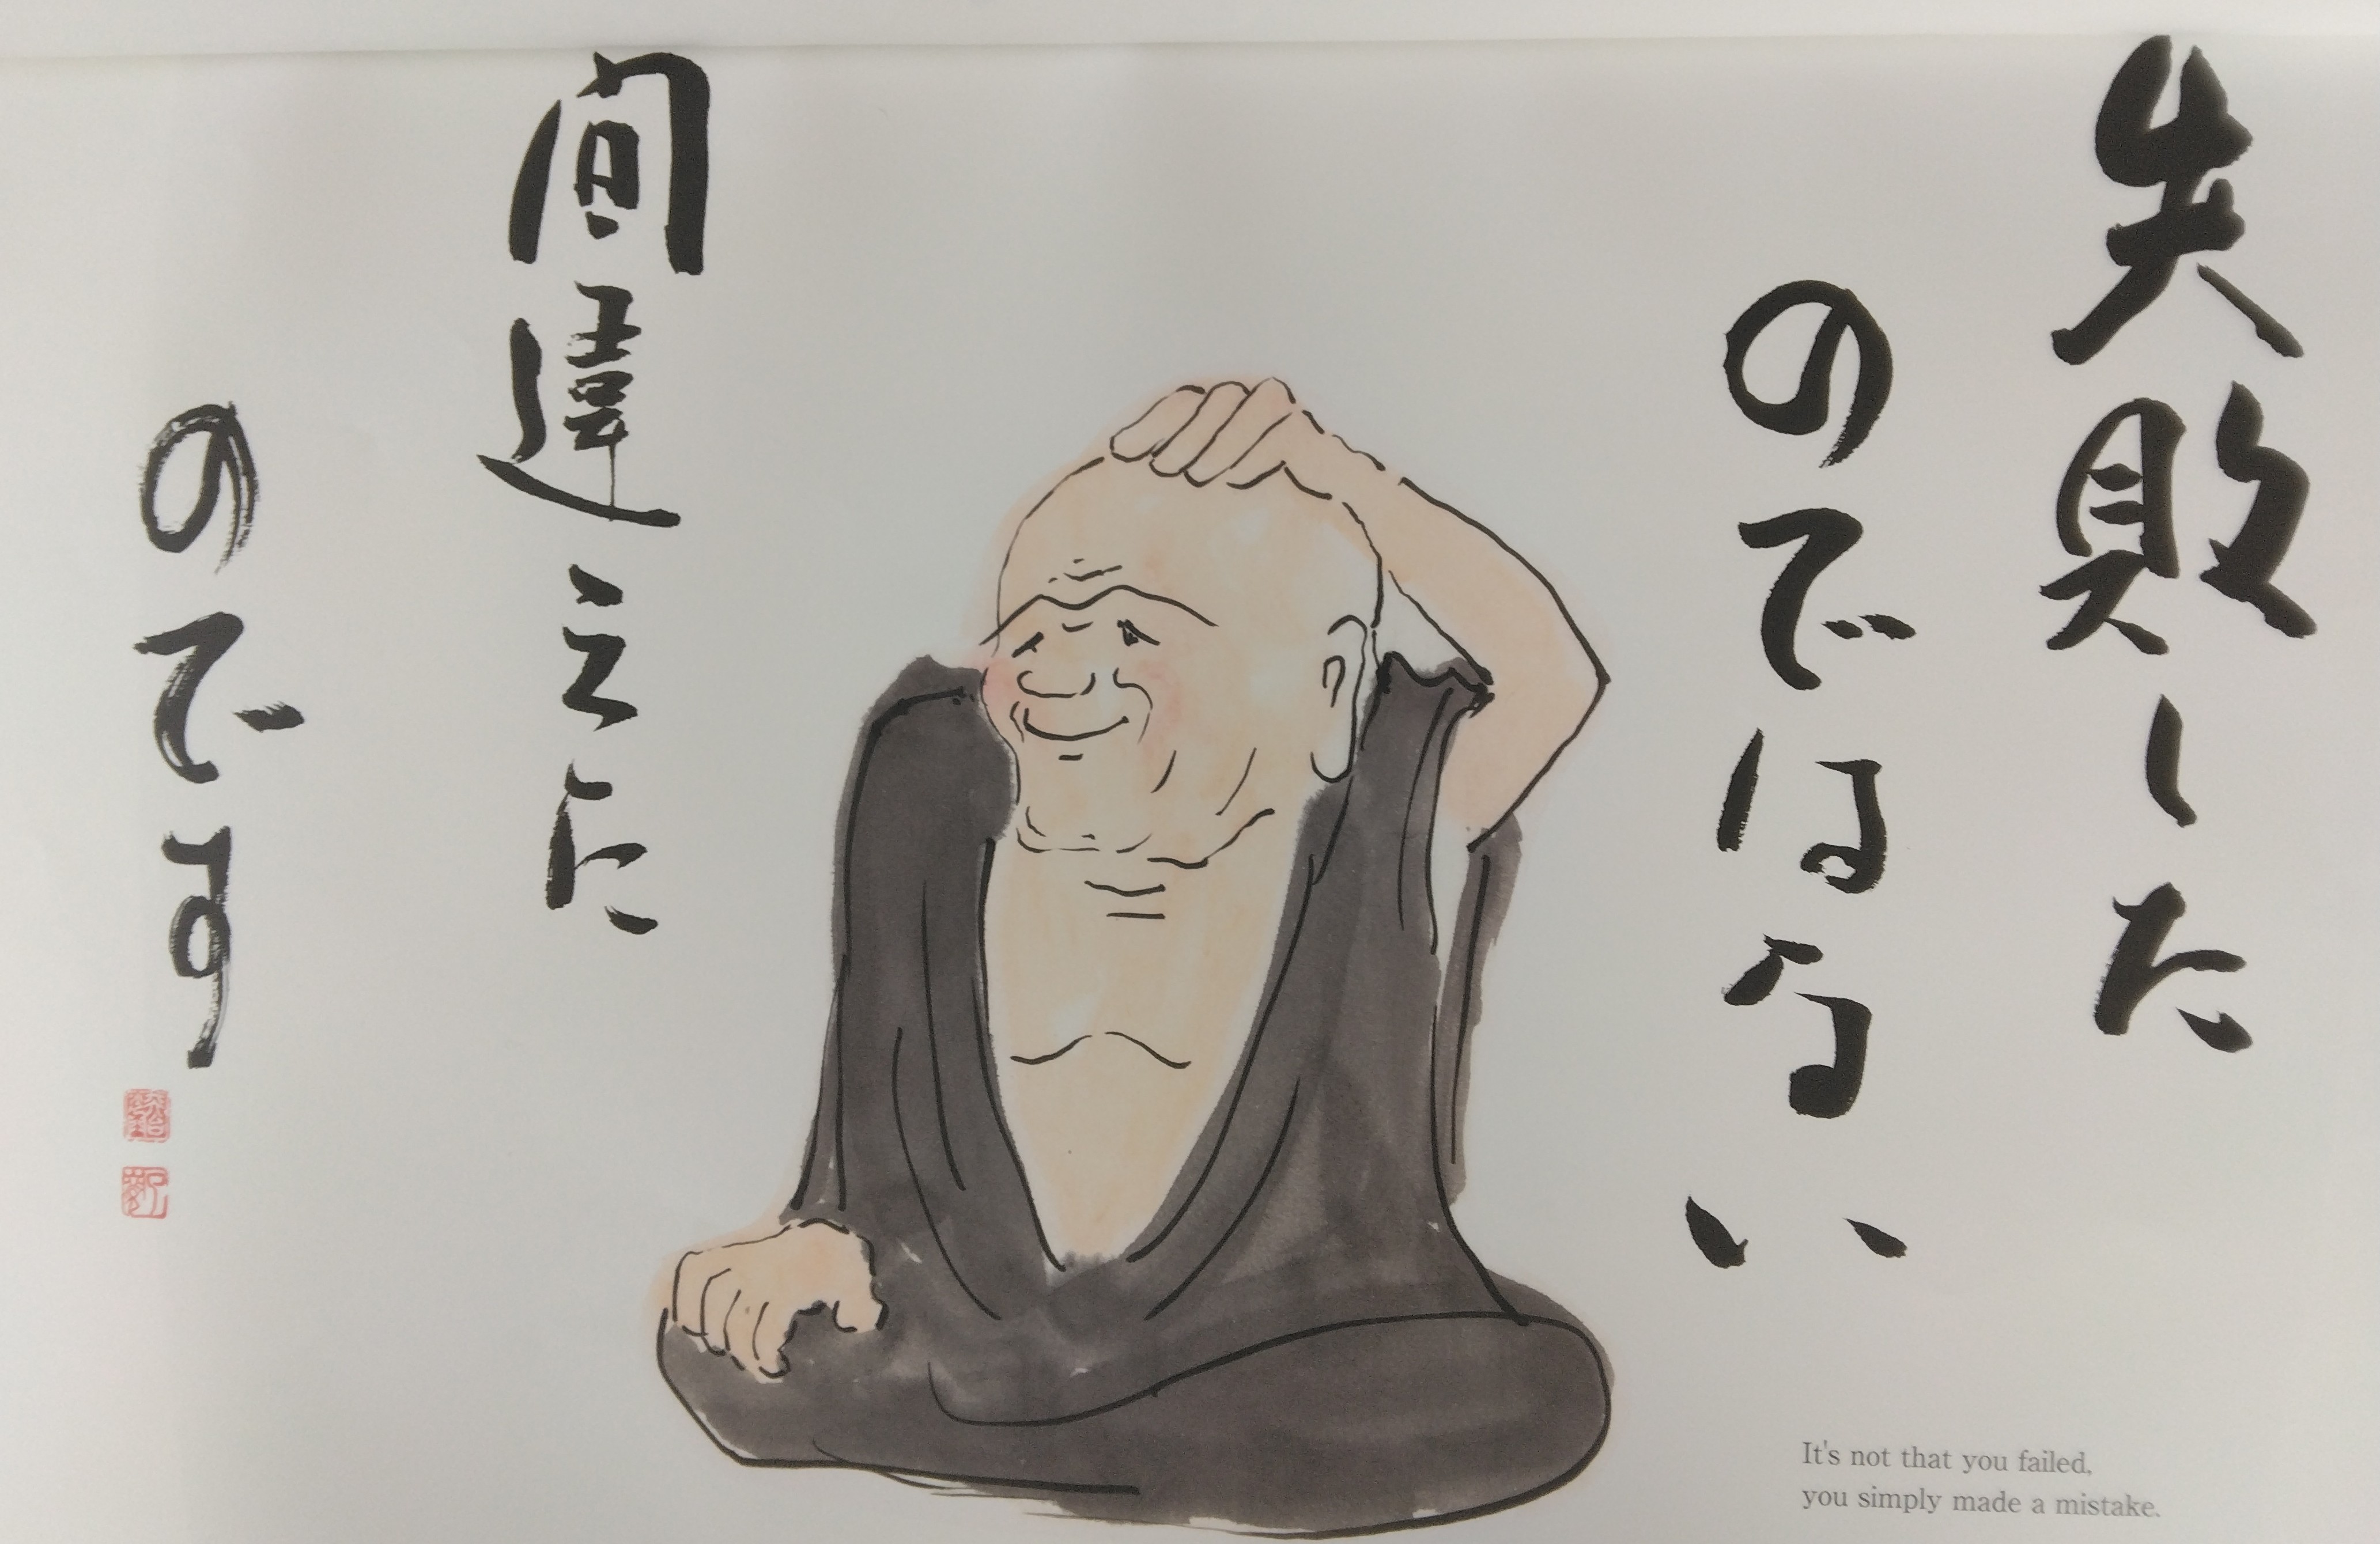 失敗した
のではない
間違えた
のです
It's not that you failed,
you simply made a mistake.